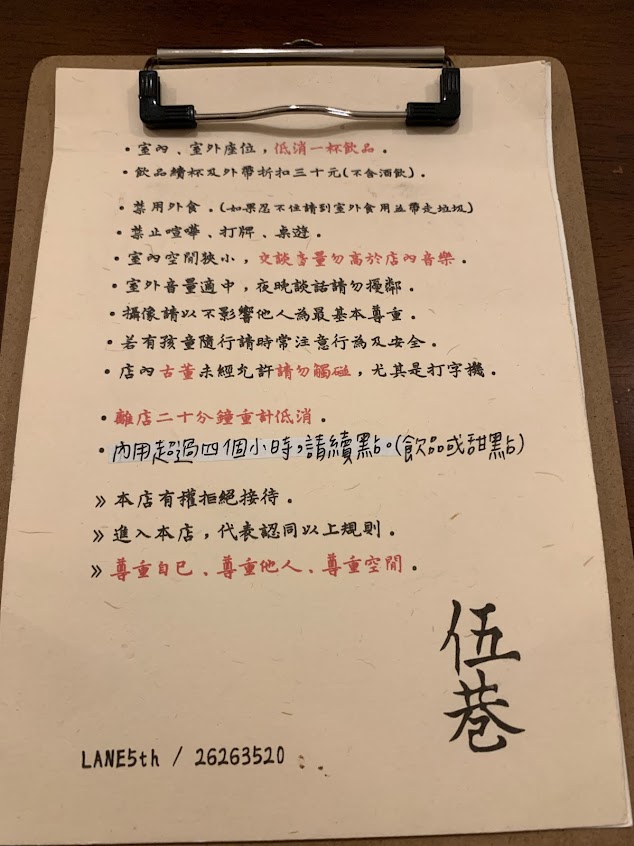 • 室內、室外座位，低消一杯飲品。
• 飲品續杯及外帶折扣三十元(不含酒飲)。
• 禁用外食。(如果忍不住請到室外食用並帶走垃圾)
• 禁止喧嘩、打牌、桌遊。
• 室內空間狹小，交談音量勿高於店內音樂。
• 室外音量適中，夜晚談話請勿擾鄰。
• 攝像請以不影響他人為最基本尊重。
• 若有孩童隨行請時常注意行為及安全。
• 店內古董未經允許請勿觸碰，尤其是打字機。
• 離店二十分鐘重計低消。
• 內用超過四個小時，請續點。(飲品或甜點)
» 本店有權拒絕接待。
» 進入本店，代表認同以上規則。
» 尊重自己、尊重他人、尊重空間。
伍巷
LANE5th / 26263520